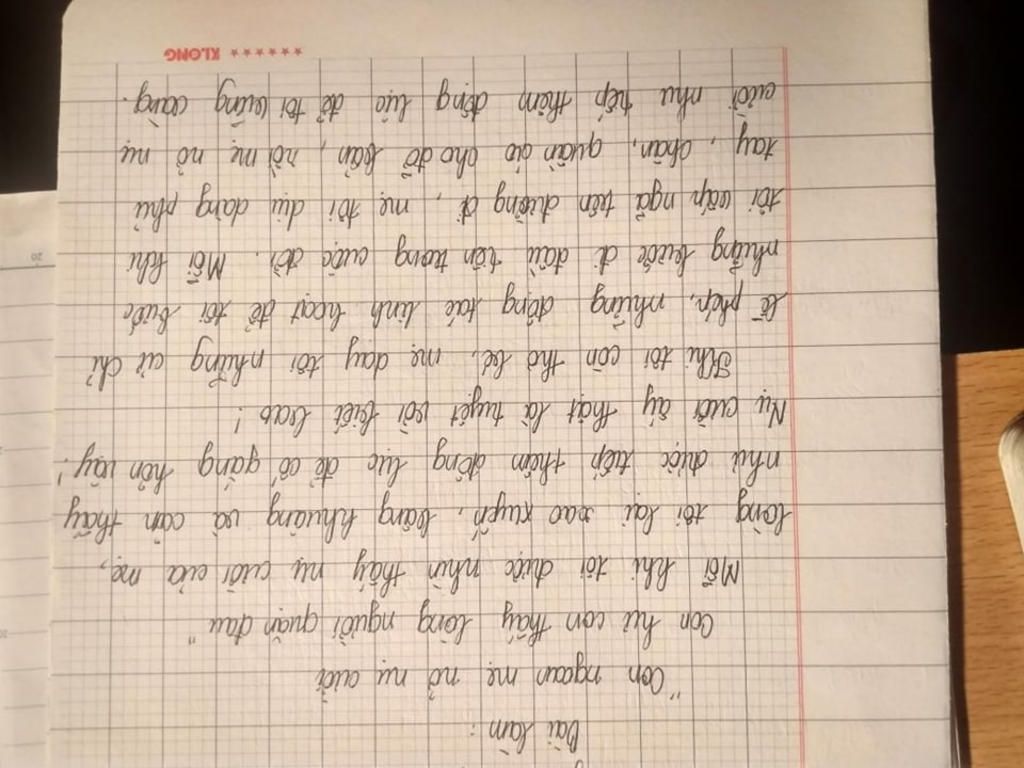 Bài làm:
"Con ngoan mẹ nở nụ cười
Con hư con thấy lòng người quặn đau"
Mỗi khi tôi được nhìn thấy nụ cười của mẹ,
lòng tôi lại xao xuyến, bâng khuâng và cảm thấy
như được tiếp thêm động lực để cố gắng hơn vậy!
Nụ cười ấy thật là tuyệt vời biết bao!
Khi tôi còn thơ bé, mẹ dạy tôi những cử chỉ
lễ phép, những động tác linh hoạt để tôi bước
những bước đi đầu tiên trong cuộc đời. Mỗi khi
tôi vấp ngã trên đường đi, mẹ tôi dịu dàng phủi
tay, chân, quần áo cho đỡ bẩn, rồi mẹ nở nụ
cười như tiếp thêm động lực để tôi vững vàng.
★★★★★★ KLONG
20